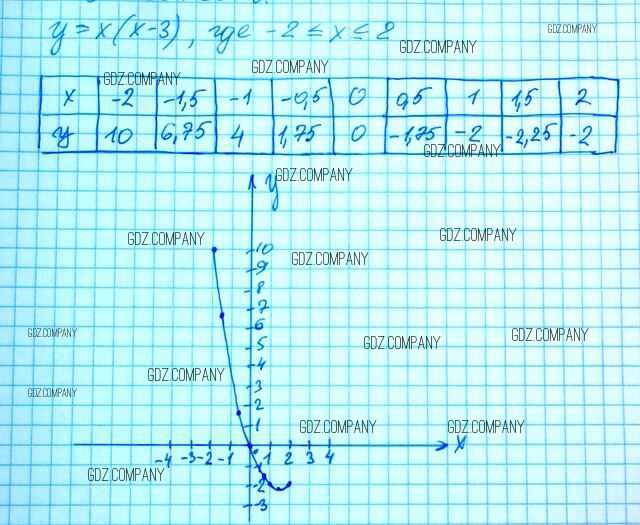 y = x(x-3), где -2 ≤ x ≤ 2
GDZ.COMPANY
GDZ.COMPANY
GDZ.COMPANY
GDZ.COMPANY
x -2 -1,5 -1 -0,5 0 0,5 1 1,5 2
y 10 6,75 4 1,75 0 -1,75 -2 -2,25 -2
GDZ.COMPANY
GDZ.COMPANY
y
GDZ.COMPANY
GDZ.COMPANY
GDZ.COMPANY
10
9
8
7
6
5
4
3
2
1
GDZ.COMPANY
GDZ.COMPANY
GDZ.COMPANY
GDZ.COMPANY
GDZ.COMPANY
GDZ.COMPANY
GDZ.COMPANY
x
-4 -3 -2 -1 1 2 3 4
GDZ.COMPANY
-1
-2
-3